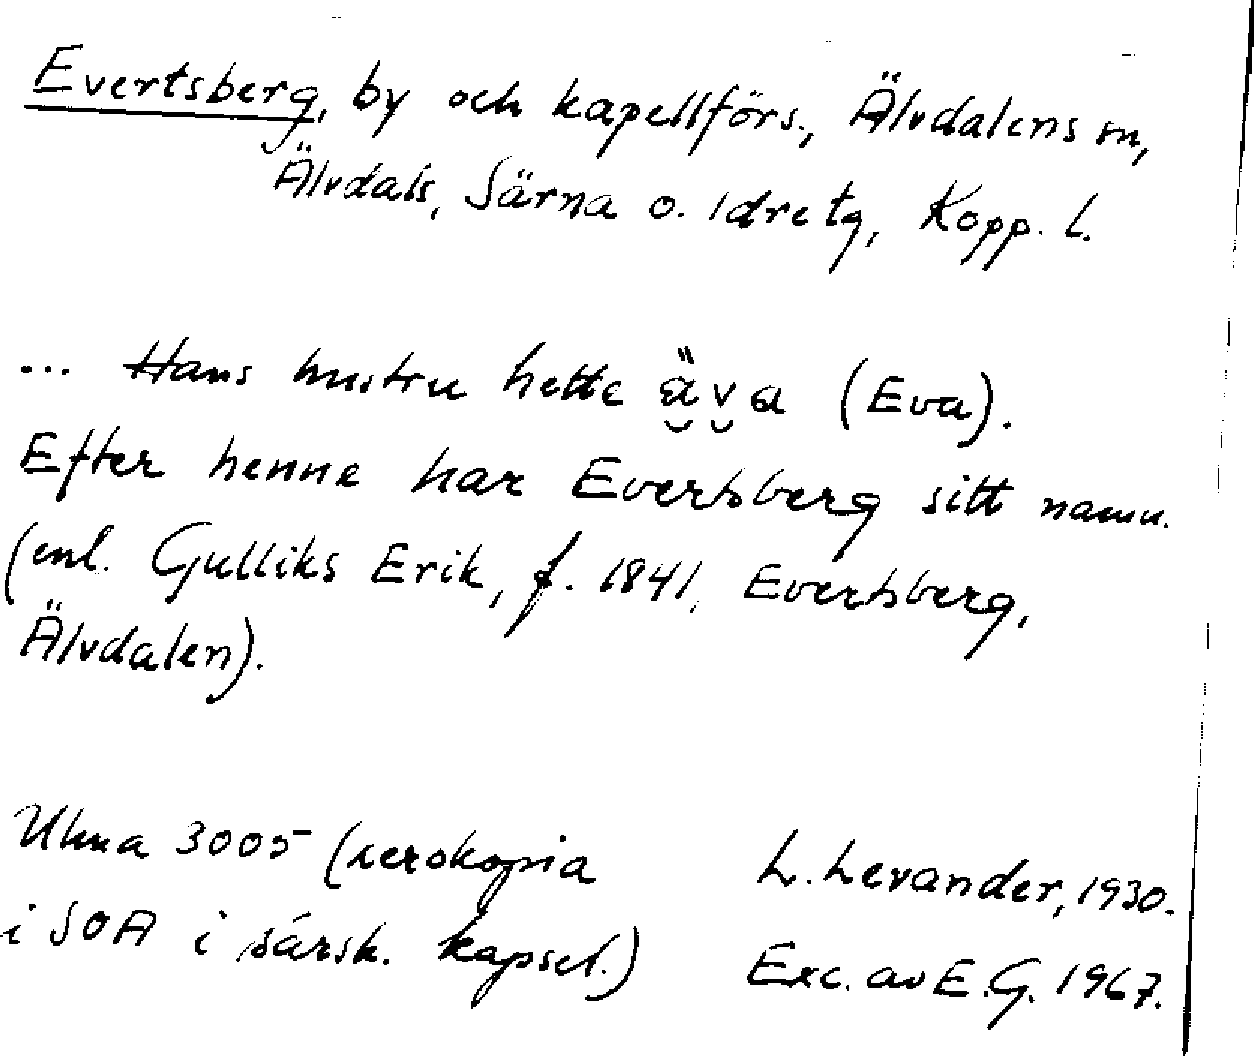 Evertsberg, by och kapellförs., Älvdalens sn,
Älvdals, Särna o. Idre tg, Kopp. l.
... Hans hustru hette äva (Eva).
Efter henne har Evertsberg sitt namn.
(enl. Gulliks Erik, f. 1841, Evertsberg,
Älvdalen).
Ulma 3005 (xerokopia
i SOA i särsk. kapsel.)
L. Levander, 1930.
Exc. av E.G. 1967.